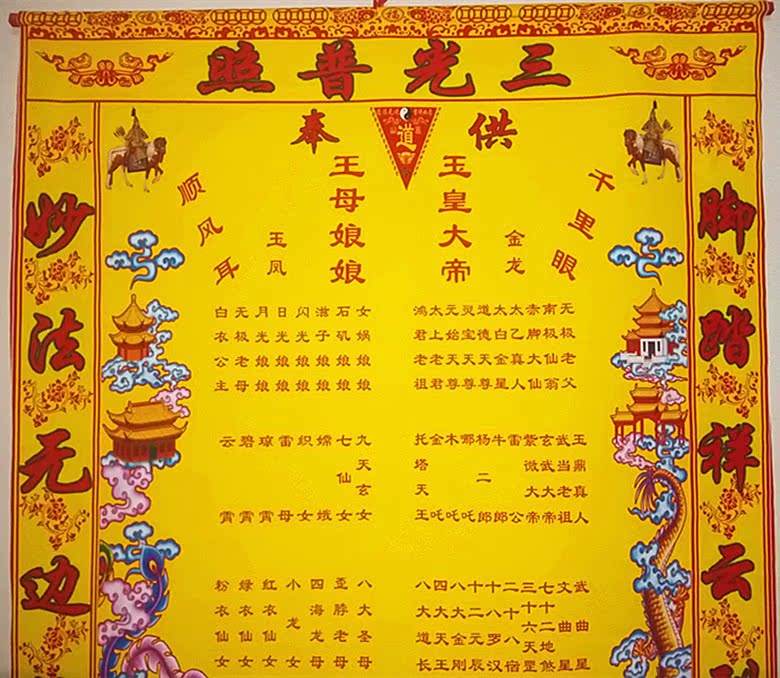 三光普照
供奉
道
脚踏祥云
妙法无边
千里眼
金龙
玉皇大帝
王母娘娘
玉凤
顺风耳
无极老父
南极仙翁
赤脚大仙
太乙真人
太白金星
道德天尊
灵宝天尊
元始天尊
太上老君
鸿君老祖
女娲娘娘
石矶娘娘
滋子娘娘
闪光娘娘
日光娘娘
月光娘娘
无极老母
白衣公主
玉鼎真人
武当老祖
玄武大帝
紫微大帝
雷公
牛郎
杨二郎
哪吒
木吒
金吒
托塔天王
九天玄女
七仙女
嫦娥
织女
雷母
琼霄
碧霄
云霄
武曲星
文曲星
七十二地煞
三十六天罡
二十八宿
十八罗汉
十二元辰
八大金刚
四大天王
八大道长
八大圣母
歪脖老母
四海龙母
小龙女
红衣仙女
绿衣仙女
粉衣仙女